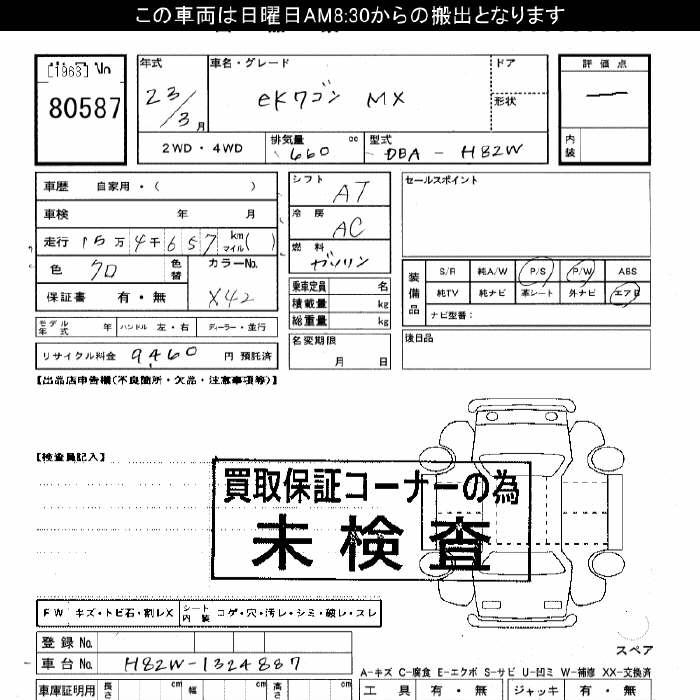 この車両は日曜日AM8:30からの搬出となります
[1963]
80587
年式
23/3月
車名・グレード
eKワゴン MX
ドア
形状
評価点
内装
2WD・4WD
排気量 cc
660
型式
DBA - H82W
車歴 自家用・( )
車検 年 月
走行 15万4千657 km マイル( )
色 クロ 色替
カラーNo.
X42
保証書 有・無
シフト AT
冷房 AC
燃料 ガソリン
乗車定員 名
積載量 kg
総重量 kg
セールスポイント
装備品
S/R 純A/W P/S P/W ABS
純TV 純ナビ 革シート 外ナビ エアB
ナビ型番:
モデル年式 年 ハンドル 左・右 ディーラー・並行
名変期限
月 日
後日品
リサイクル料金 9,460 円 預託済
【出品店申告欄(不良箇所・欠品・注意事項等)】
【検査員記入】
買取保証コーナーの為
未検査
FW キズ・トビ石・割レX
シート内装 コゲ・穴・汚レ・シミ・破レ・スレ
登録No.
車台No. H82W-1324887
スペア
A-キズ C-腐食 E-エクボ S-サビ U-凹ミ W-補修 XX-交換済
車庫証明用 長さ cm 幅 cm 高さ cm
工具 有・無 ジャッキ 有・無